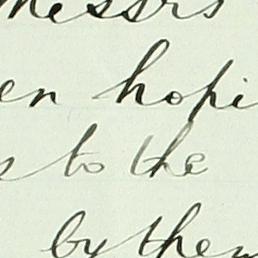 Messrs
en hopi
s to the
by them